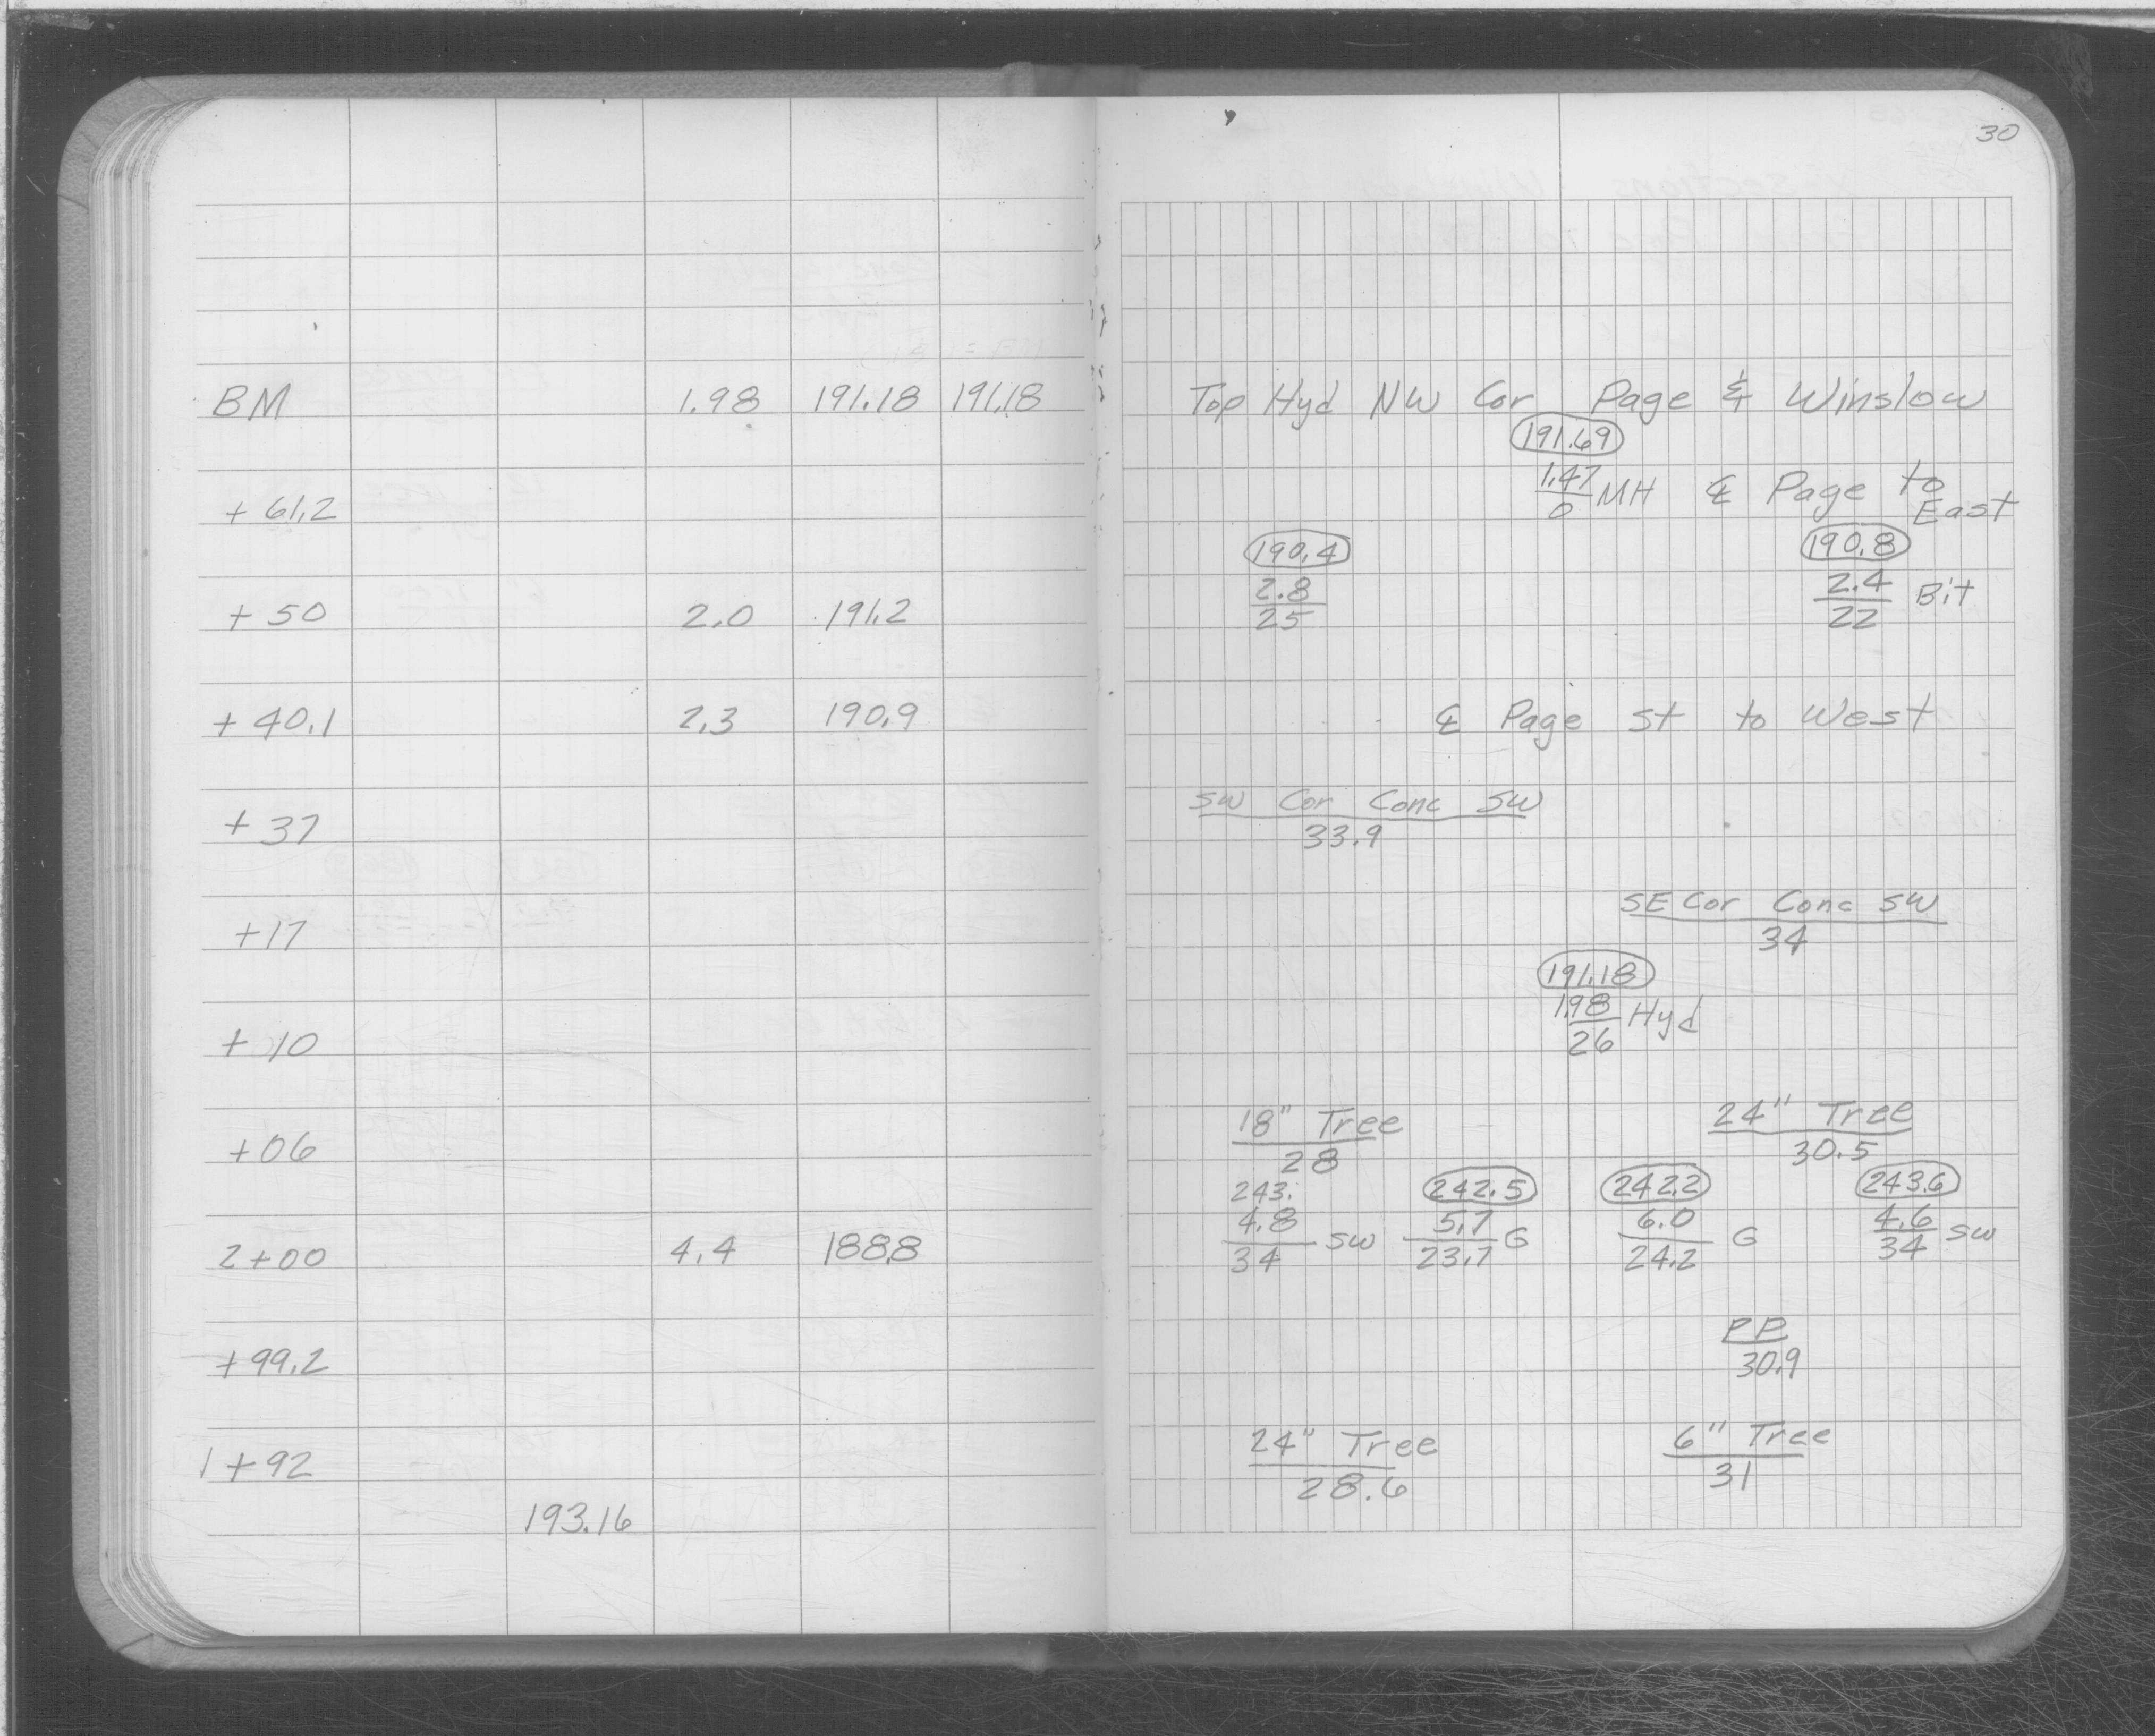 30
BM 1.98 191.18 191.18 Top Hyd NW Cor Page & Winslow
191.69
+ 61.2 1.47 MH ℄ Page to East
0
190.4 190.8
2.8 2.4 Bit
+ 50 2.0 191.2 25 22
+ 40.1 2.3 190.9 ℄ Page St to West
SW Cor Conc SW
+ 37 33.9
SE Cor Conc SW
+17 34
191.18
1.98 Hyd
+ 10 26
18" Tree 24" Tree
+06 28 30.5
243. 242.5 242.2 243.6
4.8 SW 5.7 G 6.0 G 4.6 SW
2+00 4.4 188.8 34 23.7 24.2 34
PP
+99.2 30.9
24" Tree 6" Tree
1+92 28.6 31
193.16